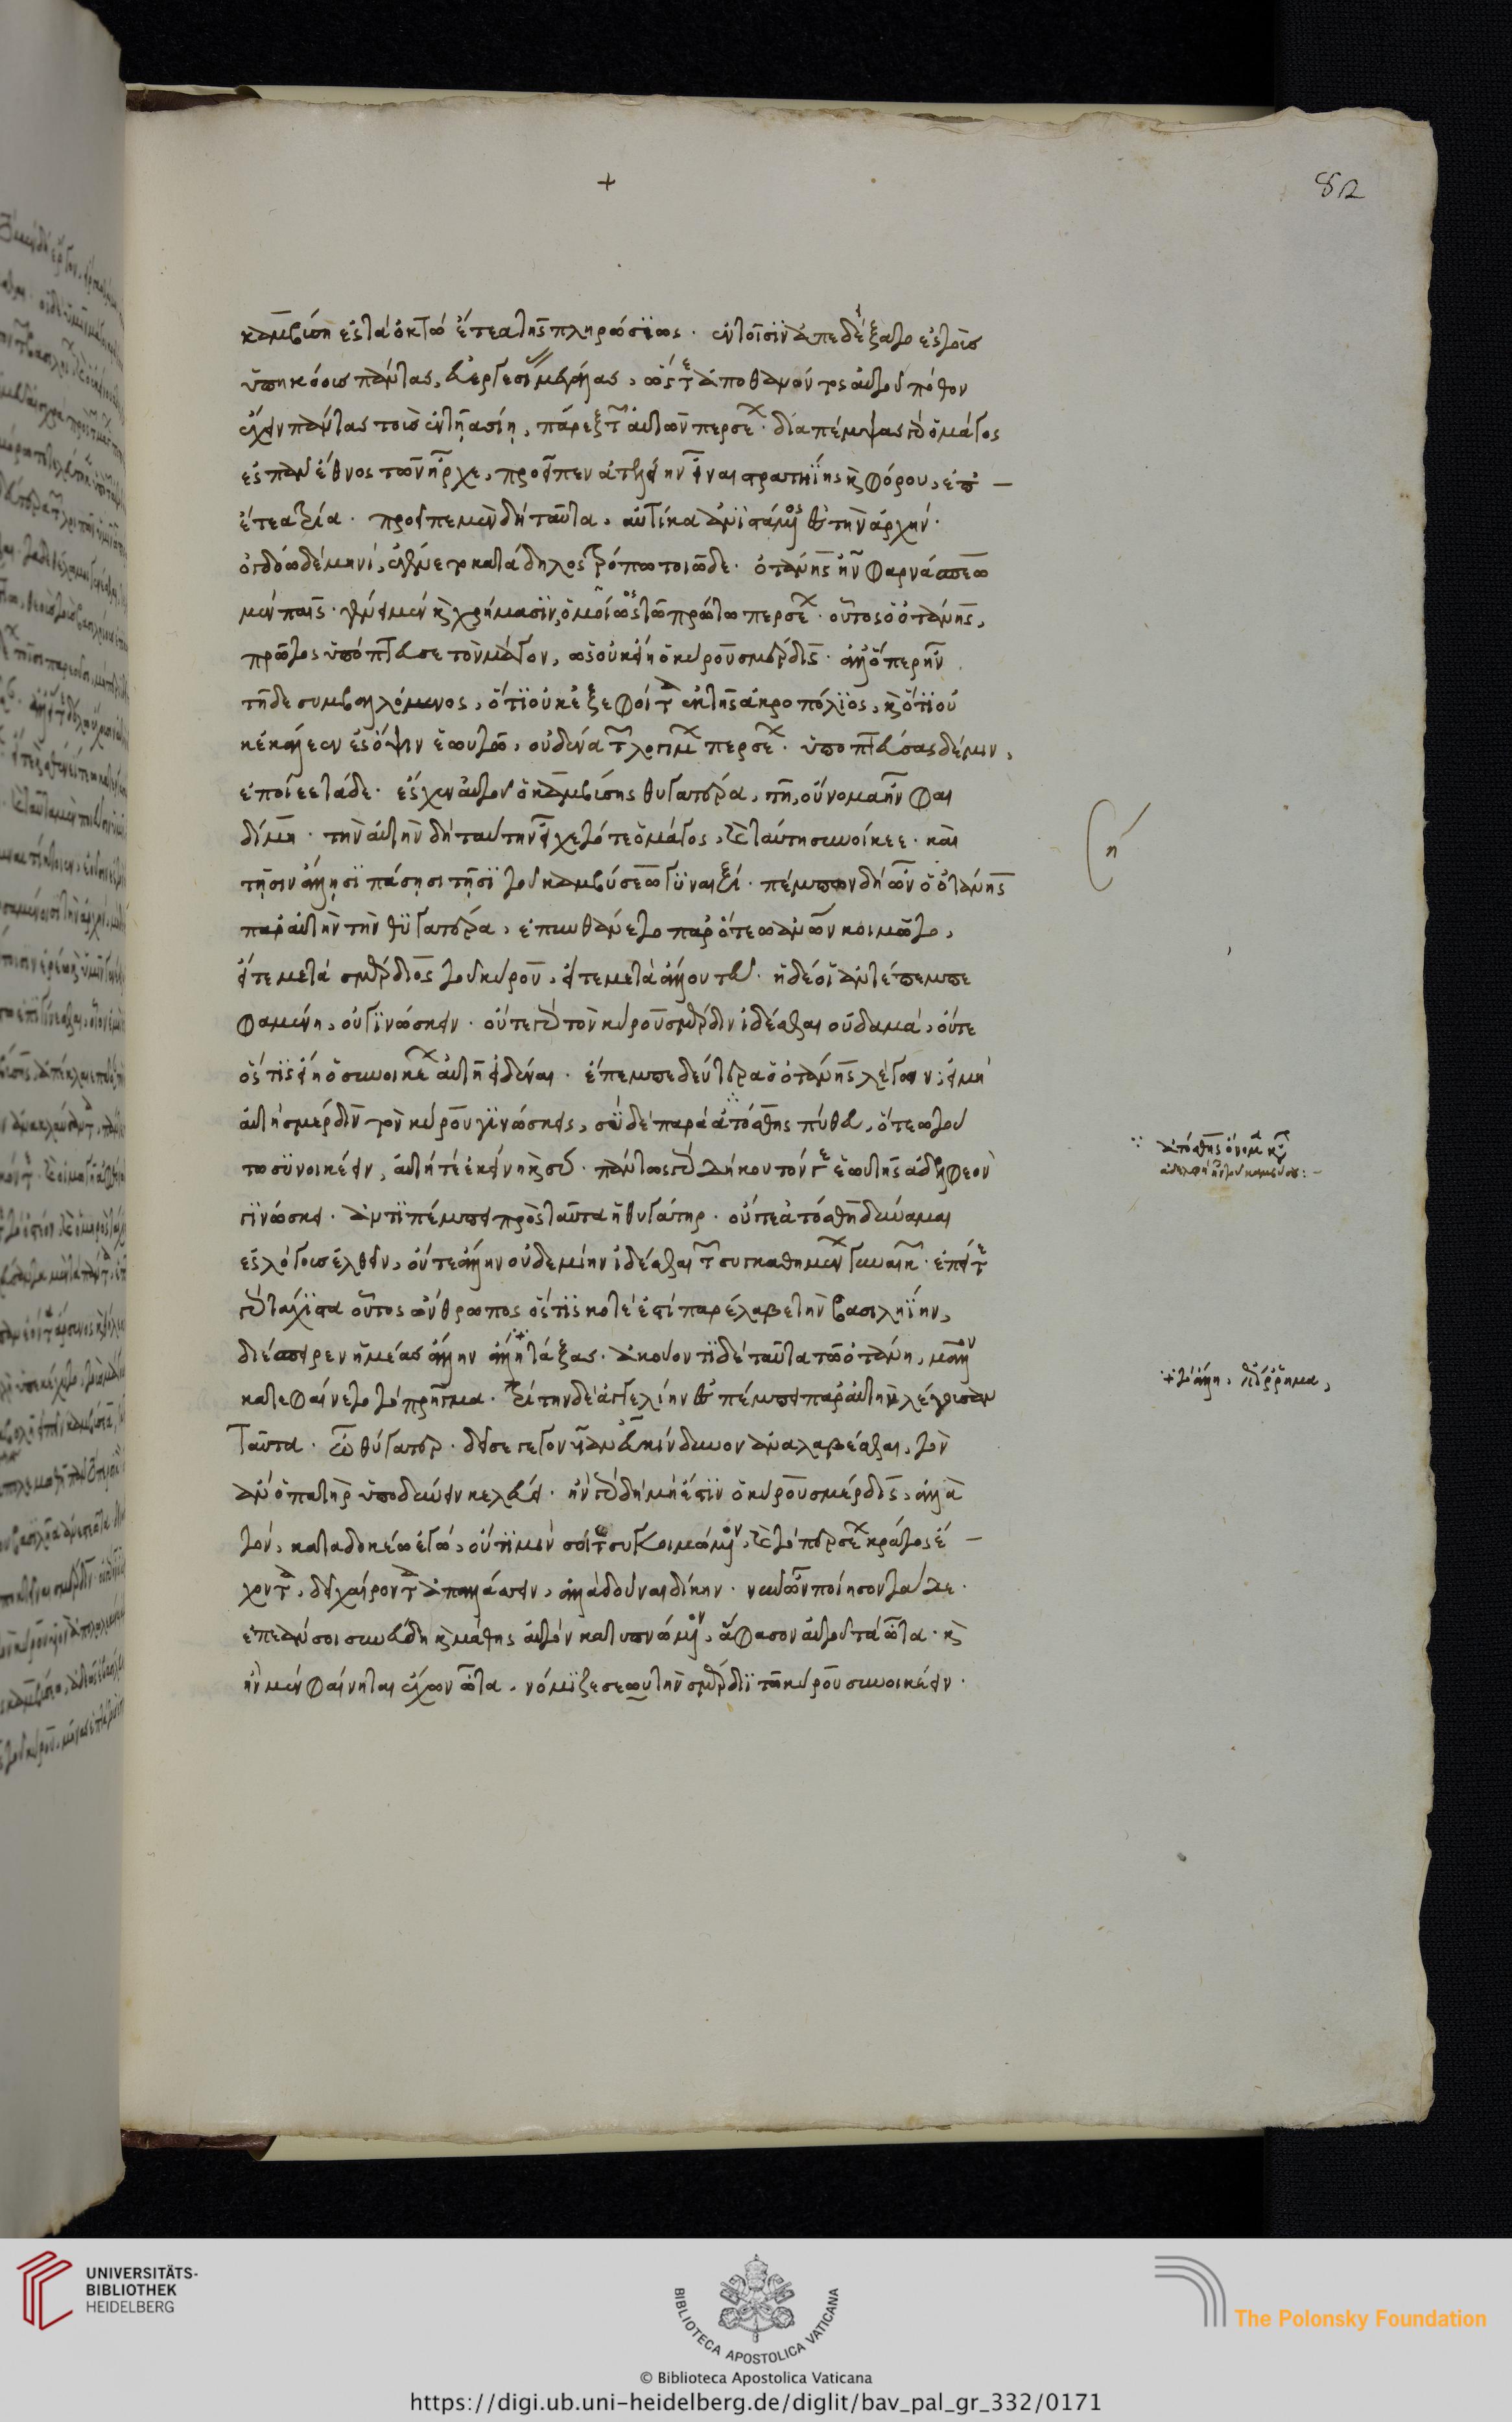 +
82
καμβύση ἐς τὰ ὀκτὼ ἔτεα τῆς πληρώσϊος. ἐν τοῖσιν ἀπεδέξατο ἐς τοὺς
ὑπηκόους πάντας, εὐεργεσίας μεγάλας, ὥστε ἀποθανόντος αὐτοῦ πόθον
ἔχειν πάντας τοὺς ἐν τῆ ἀσίη, πάρεξ τῶν αὐτῶν περσέων. διαπέμψας γὰρ ὁ μάγος
ἐς πᾶν ἔθνος τῶν ἦρχε, προεῖπεν ἀτελείην εἶναι στρατηΐης καὶ φόρου, ἐπ' –
ἔτεα τρία. προεῖπε μὲν δὴ ταῦτα, αὐτίκα ἀνιστάμενος ἐς τὴν ἀρχήν.
ὀγδόω δὲ μηνὶ, ἐγένετο κατάδηλος τρόπω τοιῶδε. ὀτάνης ἦν φαρνάσπεω
μὲν παῖς. γένει μὲν καὶ χρήμασϊν, ὁμοίως τῶ πρώτω περσέων. οὗτος ὁ ὀτάνης,
πρῶτος ὑπόπτευσε τὸν μάγον, ὡς οὐκ εἴη ὁ κύρου σμέρδις. ἀλλ' ὅπερ ἦν
τῆδε συμβαλλόμενος, ὅτϊ οὐκ ἐξεφοίτα ἐκ τῆς ἀκροπόλϊος, καὶ ὅτϊ οὐ
κέκαλέεν ἐς ὄψιν ἑωυτῶ, οὐδένα τῶν λογίμων περσέων. ὑποπτεύσας δέ μιν,
ἐποίεε τάδε. ἔσχεν αὐτοῦ ὁ καμβύσης θυγατέρα, τῆ, οὔνομα ἦν φαι
δίμη. τὴν αὐτὴν δὴ ταύτην εἶχε τότε ὁ μάγος, καὶ ταύτη συνοίκεε. καὶ
τῆσιν ἄλλησϊ πάσησι τῆσϊ τοῦ καμβύσεω γϋναιξί. πέμπων δὴ ὦν ὁ ὀτάνης
παρ' αὐτὴν τὴν θϋγατέρα, ἐπυνθάνετο παρ' ὅτεω ἀνθρώπων κοιμῶτο,
εἴτε μετὰ σμέρδιος τοῦ κύρου, εἴτε μετὰ ἄλλου τευ. ἡ δέ οἱ ἀντέπεμπε
φαμένη, οὐ γϊνώσκειν. οὔτε γὰρ τὸν κύρου σμέρδιν ἰδέσθαι οὐδαμὰ, οὔτε
ὅς τϊς εἴη ὁ συνοικέων αὐτῆ εἰδέναι. ἔπεμπε δεύτερα ὁ ὀτάνης λέγων, εἰ μὴ
αὐτὴ σμέρδιν τὸν κύρου γϊνώσκεις, σὺ δὲ παρὰ ἀτόσσης πύθευ, ὅτεω τούτω
συνοικέειν, αὐτή τε ἐκείνη καὶ σύ. πάντως γὰρ δήκου τόν γε ἑωυτῆς ἀδελφεὸν
γϊνώσκει. ἀντϊπέμπει πρὸς ταῦτα ἡ θυγάτηρ. οὔτε ἀτόσση δύναμαι
ἐς λόγους ἐλθεῖν, οὔτε ἄλλην οὐδεμίην ἰδέσθαι τῶν συγκαθημένων γυναικῶν. ἐπείτε
γὰρ τάχιστα οὗτος ὥνθρωπος ὅς τϊς κοτέ ἐστι παρέλαβε τὴν βασιληΐην,
διέσπειρεν ἡμέας ἄλλην ἄλλη τάξας. ἀκούοντϊ δὲ ταῦτα τῶ ὀτάνη, μᾶλλον
κατεφαίνετο τὸ πρῆγμα. τρίτην δὲ ἀγγελίην ἐσπέμπει παρ' αὐτὴν λέγουσαν
ταῦτα. ὦ θύγατερ. δεῖ σε γεγονυῖαν εὖ κίνδυνον ἀναλαβέσθαι, τὸν
ἂν ὁ πατὴρ ὑποδύνειν κελεύει. ἢν γὰρ δὴ μὴ ἔστϊν ὁ κύρου σμέρδις, ἀλλὰ
τὸν, καταδοκέω ἐγὼ, οὔτϊ μιν σοί τε συγκοιμώμενον, καὶ τὸ περσέων κράτος ἔ –
χοντα, δεῖ χαίροντα ἀπαλλάσσειν, ἀλλὰ δοῦναι δίκην. νῦν ὦν ποίησον τάδε.
ἐπεὰν σοι συνεύδη καὶ μάθης αὐτὸν κατυπνωμένον, ἄφασον αὐτοῦ τὰ ὦτα. καὶ
ἢν μὲν φαίνηται ἔχων ὦτα, νόμϊζε σεωυτὴν σμέρδϊϊ τῶ κύρου συνοικέειν.
ἀτόσσης ὄνομα κύριον
ἀδελφὴ ἦν τοῦ καμβύσου: –
τὸ ἄλλη, ἐπίρρημα,
UNIVERSITÄTS-
BIBLIOTHEK
HEIDELBERG
BIBLIOTECA APOSTOLICA VATICANA
The Polonsky Foundation
© Biblioteca Apostolica Vaticana
https://digi.ub.uni-heidelberg.de/diglit/bav_pal_gr_332/0171